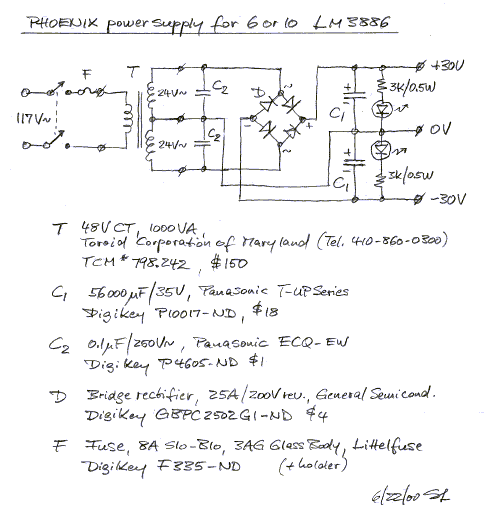 PHOENIX power supply for 6 or 10 LM3886
F T
+30V
24V~ C2 D ~ + C1 3K/0.5W
117V~
- + 0V
24V~ C2 ~ + C1 3K/0.5W
-30V
T 48VCT, 1000VA
Toroid Corporation of Maryland (Tel. 410-860-0300)
TCM # 798.242, $150
C1 56000µF/35V, Panasonic T-UP Series
Digikey P10017-ND, $18
C2 0.1µF/250V~, Panasonic ECQ-EW
Digikey P4605-ND $1
D Bridge rectifier, 25A/200Vrev., General Semicond.
Digikey GBPC2502GI-ND $4
F Fuse, 8A Slo-Blo, 3AG Glass Body, Littelfuse
Digikey F335-ND (+holder)
6/22/00 SL